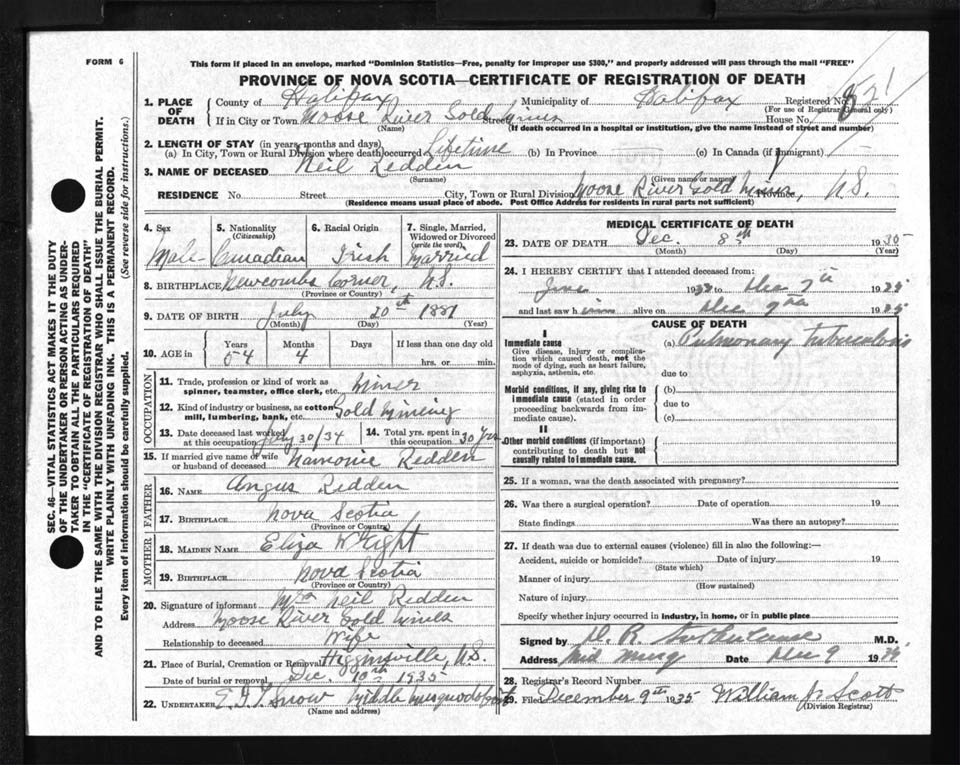 FORM 6
This form if placed in an envelope, marked "Dominion Statistics—Free, penalty for improper use $300," and properly addressed will pass through the mail "FREE"
PROVINCE OF NOVA SCOTIA—CERTIFICATE OF REGISTRATION OF DEATH
1. PLACE OF DEATH
County of Halifax Municipality of Halifax Registered No.
(For use of Registrar General only)
If in City or Town Moose River Gold Mines Street House No.
(Name) (If death occurred in a hospital or institution, give the name instead of street and number)
2. LENGTH OF STAY (in years, months and days)
(a) In City, Town or Rural Division where death occurred Lifetime (b) In Province (c) In Canada (if immigrant)
3. NAME OF DECEASED Neil Redden
(Surname) (Given name or names)
RESIDENCE No. Street City, Town or Rural Division Moose River Gold Mines, Province, N.S.
(Residence means usual place of abode. Post Office Address for residents in rural parts not sufficient)
4. Sex
Male
5. Nationality
(Citizenship)
Canadian
6. Racial Origin
Irish
7. Single, Married, Widowed or Divorced
(write the word)
Married
8. BIRTHPLACE Newcombs Corner, N.S.
(Province or Country)
9. DATE OF BIRTH July 20th 1881
(Month) (Day) (Year)
10. AGE in
Years Months Days If less than one day old
54 4 hrs. or min.
OCCUPATION
11. Trade, profession or kind of work as spinner, teamster, office clerk, etc. Miner
12. Kind of industry or business, as cotton mill, lumbering, bank, etc. Gold Mining
13. Date deceased last worked at this occupation July 30/34
14. Total yrs. spent in this occupation 30 Yrs
15. If married give name of wife or husband of deceased Redden
FATHER
16. NAME Angus Redden
17. BIRTHPLACE Nova Scotia
(Province or Country)
MOTHER
18. MAIDEN NAME Eliza Wright
19. BIRTHPLACE Nova Scotia
(Province or Country)
20. Signature of informant Mrs Neil Redden
Address Moose River Gold Mines
Relationship to deceased Wife
21. Place of Burial, Cremation or Removal Higginsville, N.S.
Date of burial or removal Dec. 10th 1935
22. UNDERTAKER Snow Middle Musquodoboit
(Name and address)
MEDICAL CERTIFICATE OF DEATH
23. DATE OF DEATH Dec. 8th 1935
(Month) (Day) (Year)
24. I HEREBY CERTIFY that I attended deceased from:
June 19 to Dec 7th 1935
and last saw h im alive on Dec 7th 1935
CAUSE OF DEATH
I
Immediate cause
Give disease, injury or complication which caused death, not the mode of dying, such as heart failure, asphyxia, asthenia, etc.
(a) Pulmonary Tuberculosis
due to
Morbid conditions, if any, giving rise to immediate cause (stated in order proceeding backwards from immediate cause).
(b)
due to
(c)
II
Other morbid conditions (if important) contributing to death but not causally related to immediate cause.
25. If a woman, was the death associated with pregnancy?
26. Was there a surgical operation? Date of operation 19
State findings Was there an autopsy?
27. If death was due to external causes (violence) fill in also the following:—
Accident, suicide or homicide? Date of injury 19
(State which)
Manner of injury
(How sustained)
Nature of injury
Specify whether injury occurred in industry, in home, or in public place
Signed by M.D.
Address Mid Musq Date Dec 9 1935
28. Registrar's Record Number
29. Filed December 9th 1935 William J. Scott
(Division Registrar)
SEC. 46—VITAL STATISTICS ACT MAKES IT THE DUTY
OF THE UNDERTAKER OR PERSON ACTING AS UNDER-
TAKER TO OBTAIN ALL THE PARTICULARS REQUIRED
IN THE "CERTIFICATE OF REGISTRATION OF DEATH"
AND TO FILE THE SAME WITH THE DIVISION REGISTRAR WHO SHALL ISSUE THE BURIAL PERMIT.
WRITE PLAINLY WITH UNFADING INK. THIS IS A PERMANENT RECORD.
Every item of information should be carefully supplied. (See reverse side for instructions.)